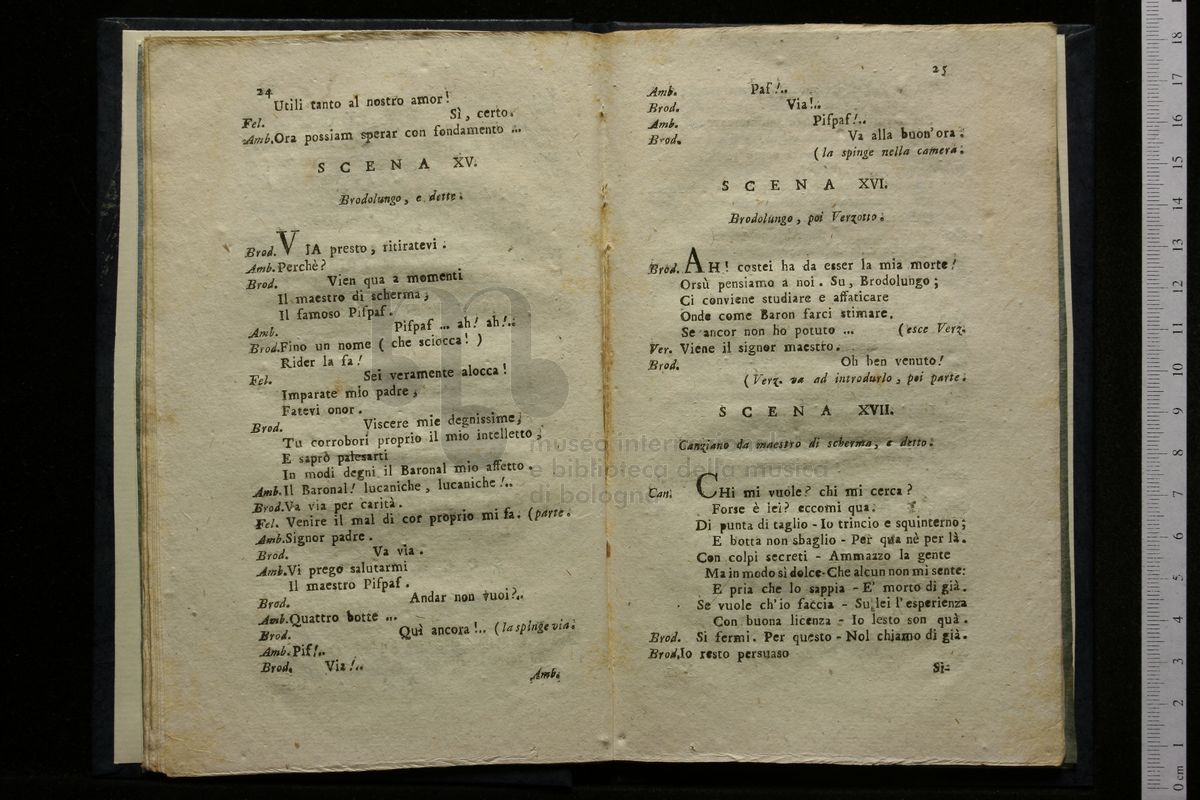 24
Utili tanto al nostro amor!
Fel. Sì, certo.
Amb. Ora possiam sperar con fondamento ...
SCENA XV.
Brodolungo, e dette.
Brod. VIA presto, ritiratevi.
Amb. Perchè?
Brod. Vien qua a momenti
Il maestro di scherma;
Il famoso Pifpaf.
Amb. Pifpaf ... ah! ah!..
Brod. Fino un nome ( che sciocca! )
Rider la fa!
Fel. Sei veramente alocca!
Imparate mio padre,
Fatevi onor.
Brod. Viscere mie degnissime;
Tu corrobori proprio il mio intelletto;
E saprò palesarti
In modi degni il Baronal mio affetto.
Amb. Il Baronal! lucaniche, lucaniche!..
Brod. Va via per carità.
Fel. Venire il mal di cor proprio mi fa. (parte.
Amb. Signor padre.
Brod. Va via.
Amb. Vi prego salutarmi
Il maestro Pifpaf.
Brod. Andar non vuoi?..
Amb. Quattro botte ...
Brod. Quì ancora!.. (la spinge via.
Amb. Pif!..
Brod. Via!..
Amb.
25
Amb. Paf!..
Brod. Via!..
Amb. Pifpaf!..
Brod. Va alla buon'ora.
(la spinge nella camera.
SCENA XVI.
Brodolungo, poi Verzotto.
Brod. AH! costei ha da esser la mia morte!
Orsù pensiamo a noi. Su, Brodolungo;
Ci conviene studiare e affaticare
Onde come Baron farci stimare.
Se ancor non ho potuto ... (esce Verz.
Ver. Viene il signor maestro.
Brod. Oh ben venuto!
(Verz. va ad introdurlo, poi parte.
SCENA XVII.
Canziano da maestro di scherma, e detto.
Can. CHi mi vuole? chi mi cerca?
Forse è lei? eccomi qua.
Di punta di taglio - Io trincio e squinterno;
E botta non sbaglio - Per qua nè per là.
Con colpi secreti - Ammazzo la gente
Ma in modo sì dolce - Che alcun non mi sente:
E pria che lo sappia - E' morto di già.
Se vuole ch'io faccia - Su lei l'esperienza
Con buona licenza - Io lesto son quà.
Brod. Si fermi. Per questo - Nol chiamo di già.
Brod. Io resto persuaso
Si-
museo intern
e biblioteca della musica
di bologna
0 cm 1 2 3 4 5 6 7 8 9 10 11 12 13 14 15 16 17 18